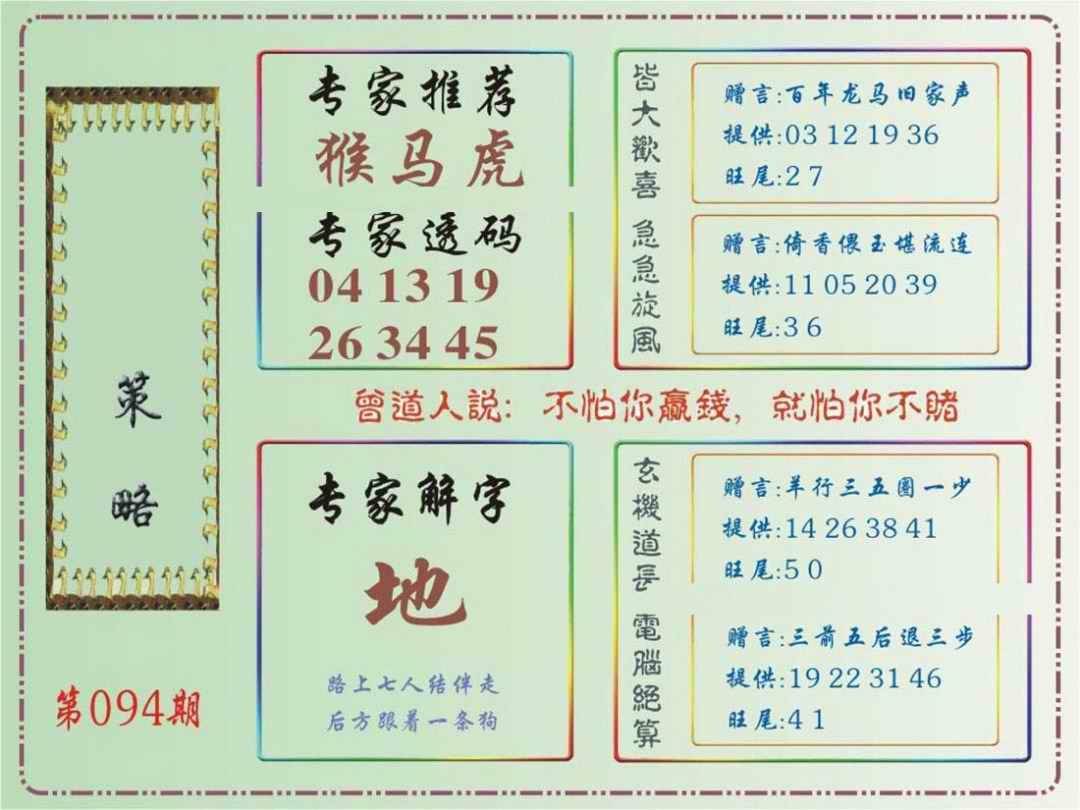 策
略
第094期
专家推荐
猴马虎
专家透码
04 13 19
26 34 45
皆大歡喜
赠言:百年龙马旧家声
提供:03 12 19 36
旺尾:2 7
急急旋風
赠言:倚香偎玉堪流连
提供:11 05 20 39
旺尾:3 6
曾道人説:不怕你贏錢,就怕你不賭
专家解字
地
路上七人结伴走
后方跟着一条狗
玄機道長
赠言:羊行三五圈一少
提供:14 26 38 41
旺尾:5 0
電腦絕算
赠言:三前五后退三步
提供:19 22 31 46
旺尾:4 1